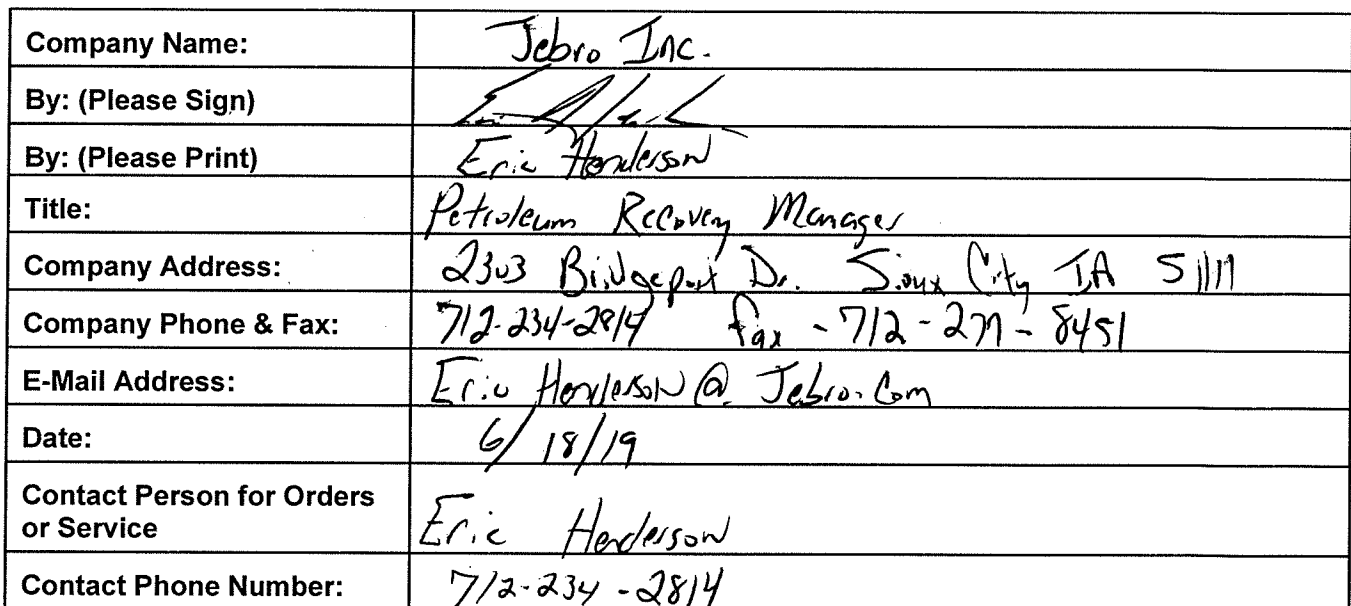 Company Name: Jebro Inc.
By: (Please Sign)
By: (Please Print) Eric Henderson
Title: Petroleum Recovery Manager
Company Address: 2303 Bridgeport Dr. Sioux City IA 51111
Company Phone & Fax: 712-234-2814 fax - 712-277-8451
E-Mail Address: Eric Henderson @ Jebro.Com
Date: 6/18/19
Contact Person for Orders
or Service Eric Henderson
Contact Phone Number: 712-234-2814